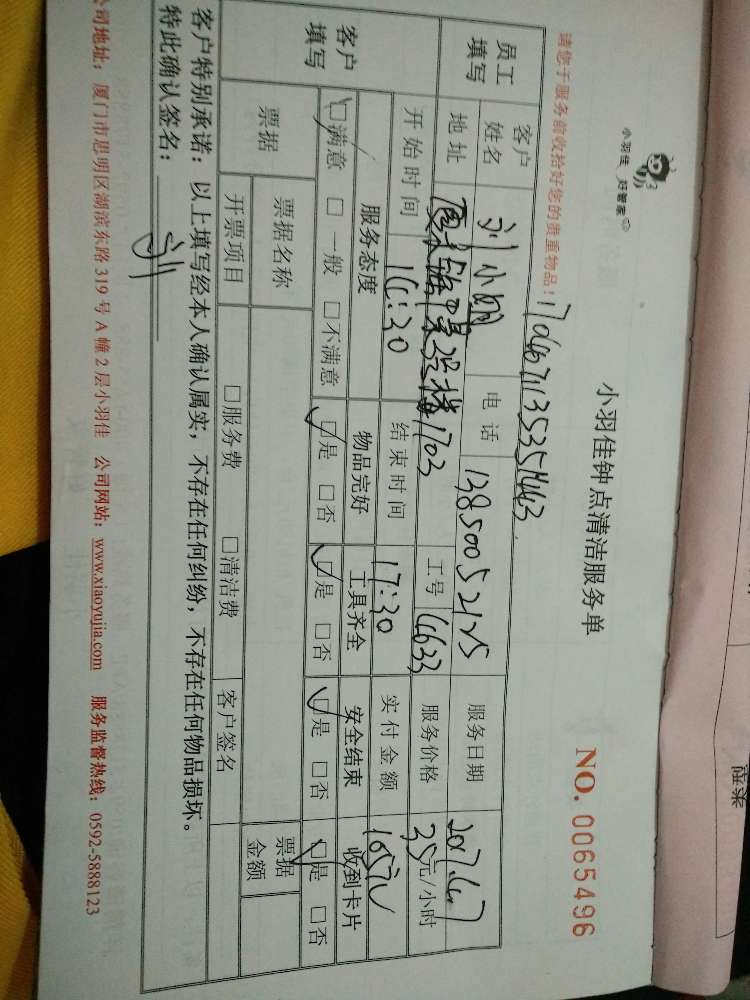 小羽佳 好管家
小羽佳钟点清洁服务单
NO. 0065496
请您于服务前收拾好您的贵重物品！
员工填写
客户姓名 刘小明 电话 13850052125 服务日期 2017.4.7
地址 1703 工号 服务价格 35元/小时
开始时间 16:30 结束时间 17:30 实付金额
客户填写
服务态度 物品完好 工具齐全 安全结束 收到卡片
☑满意 □一般 □不满意 ☑是 □否 ☑是 □否 ☑是 □否 ☑是 □否
票据
票据名称 票据金额
开票项目 □服务费 □清洁费 客户签名
客户特别承诺：以上填写经本人确认属实，不存在任何纠纷，不存在任何物品损坏。
特此确认签名：刘
公司地址：厦门市思明区湖滨东路 319 号 A 幢 2 层小羽佳 公司网站：www.xiaoyujia.com 服务监督热线：0592-5888123